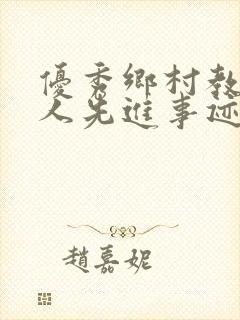 優秀鄉村教
人先進事迹
趙嘉妮